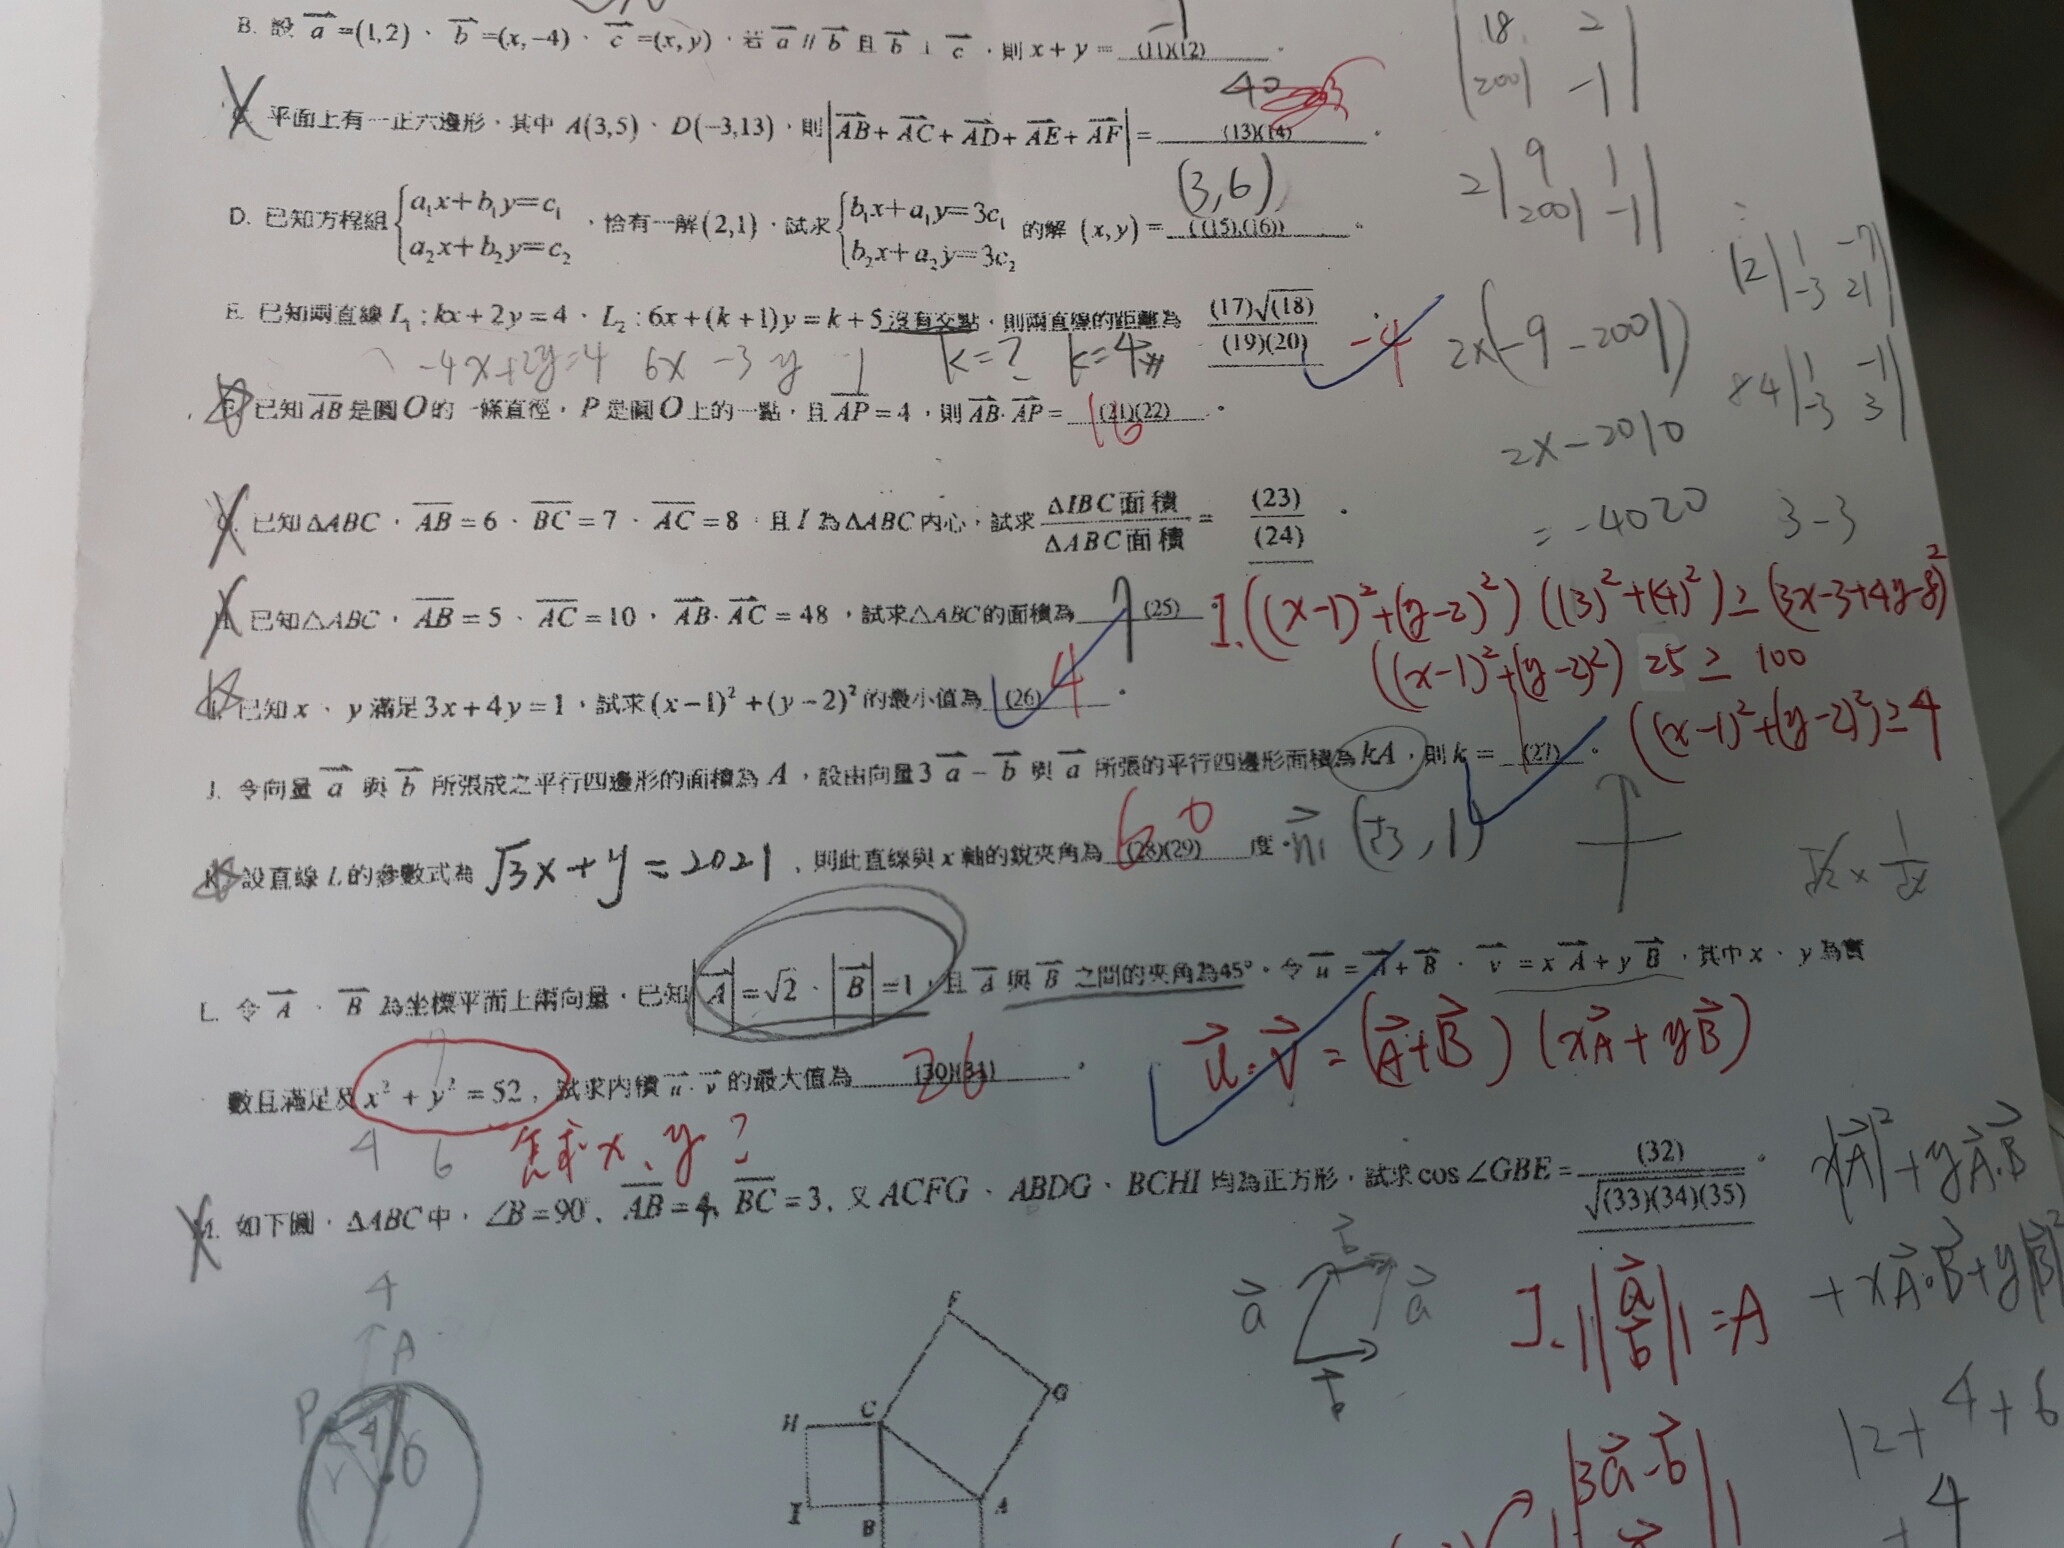 B. 設 a=(1,2)、b=(x,-4)、c=(x,y)，若 a // b 且 b ⊥ c，則 x+y= (11)(12) 。
-1
平面上有一正六邊形，其中 A(3,5)、D(-3,13)，則 |AB+AC+AD+AE+AF| = (13)(14) 。
40
D. 已知方程組 {a₁x+b₁y=c₁ a₂x+b₂y=c₂，恰有一解(2,1)，試求 {b₁x+a₁y=3c₁ b₂x+a₂y=3c₂ 的解 (x,y)= ((15),(16)) 。
(3,6)
E. 已知兩直線 L₁:kx+2y=4、L₂:6x+(k+1)y=k+5 沒有交點，則兩直線的距離為 (17)√(18) / (19)(20) 。
-4x+2y=4 6x -3y 1 k=? k=4 -4
已知 AB 是圓 O 的一條直徑，P 是圓 O 上的一點，且 AP=4，則 AB·AP= (21)(22) 。
16
已知 ΔABC，AB=6、BC=7、AC=8，且 I 為 ΔABC 內心，試求 ΔIBC面積 / ΔABC面積 = (23)/(24) 。
已知△ABC，AB=5、AC=10，AB·AC=48，試求△ABC的面積為 (25) 。
7
已知 x、y 滿足 3x+4y=1，試求 (x-1)²+(y-2)² 的最小值為 (26) 。
4
J. 令向量 a 與 b 所張成之平行四邊形的面積為 A，設由向量 3a-b 與 a 所張的平行四邊形面積為 kA，則 k= (27) 。
設直線 L 的參數式為 √3x+y=2021，則此直線與 x 軸的銳夾角為 (28)(29) 度。
60
n₁ (√3,1)
L. 令 A、B 為坐標平面上兩向量，已知 |A|=√2、|B|=1，且 A 與 B 之間的夾角為45°。令 u=A+B、v=xA+yB，其中 x、y 為實
數且滿足及 x²+y²=52，試求內積 u·v 的最大值為 (30)(31) 。
26
4 6 怎求 x、y?
u·v=(A+B)(xA+yB)
如下圖，ΔABC 中，∠B=90°、AB=4、BC=3，又 ACFG、ABDG、BCHI 均為正方形，試求 cos∠GBE= (32) / √(33)(34)(35) 。
|18 2|
|2001 -1|
2|9 1|
|2001 -1|
2x(-9-2001)
2x-2010
=-4020
12|1 -7|
|-3 21|
84|1 -1|
|-3 3|
3-3
I. ((x-1)²+(y-2)²)((3)²+(4)²)≥(3x-3+4y-8)²
((x-1)²+(y-2)²) 25 ≥ 100
((x-1)²+(y-2)²)≥4
√2 × 1/√2
x|A|²+yA·B
+xA·B+y|B|²
12+4+6
+4
J. ||a b||=A
|3a-b
a b a b
4
A
P
4
r
O
F
G
H
C
I
B
A